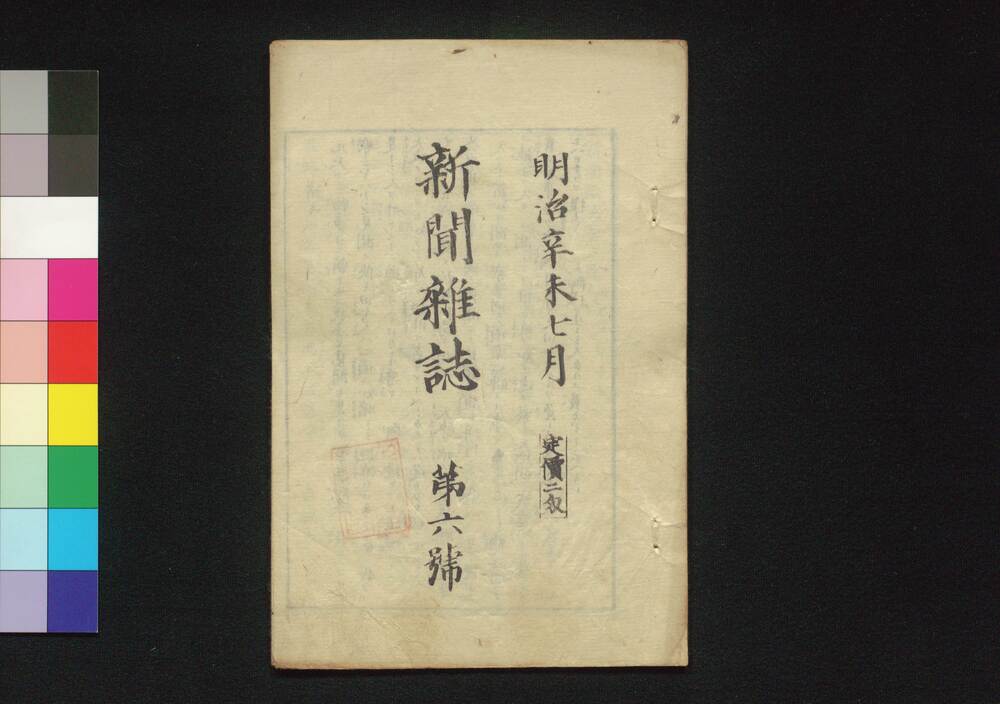 明治辛未七月
定價二匁
新聞雜誌
第六號